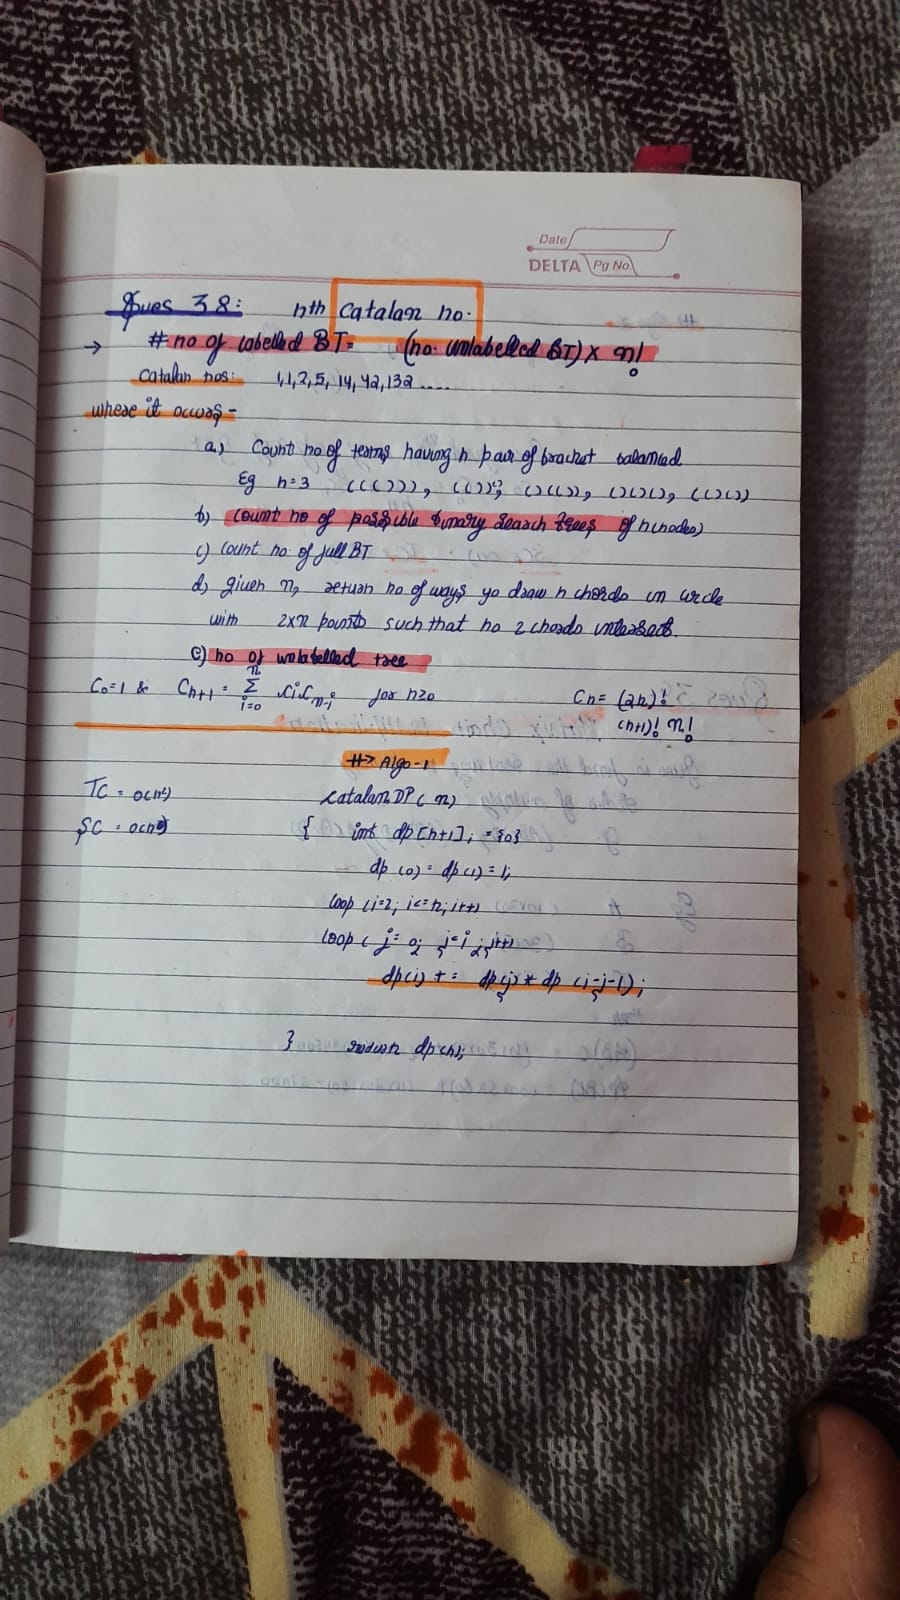 Date
DELTA Pg No.
Ques 38: nth Catalan no.
→ # no of labelled BT = (no. unlabelled BT) x n!
Catalan nos: 1,1,2,5, 14, 42, 132 ....
where it occurs -
a.) Count no of terms having n pair of bracket balanced
Eg n=3 ((())), (()()), ()(()), ()()(), (())()
b) Count no of possible binary search trees of n(nodes)
c) Count no. of full BT
d) given n, return no of ways yo draw n chords in circle
with 2xn points such that no 2 chords intersect.
e) no of unlabelled tree
C₀=1 & Cn+1 = n Σ i=0 CiCn-i for n≥0 Cn = (2n)!
(n+1)! n!
#> Algo-1
TC = O(n²) CatalanDP( n)
SC = O(n) { int dp[n+1]; = {0}
dp(0) = dp(1) = 1;
loop (i=2; i<=n; i++)
loop ( j= 0; j<i ; j++)
dp(i) += dp(j) * dp (i-j-1);
} return dp(n);